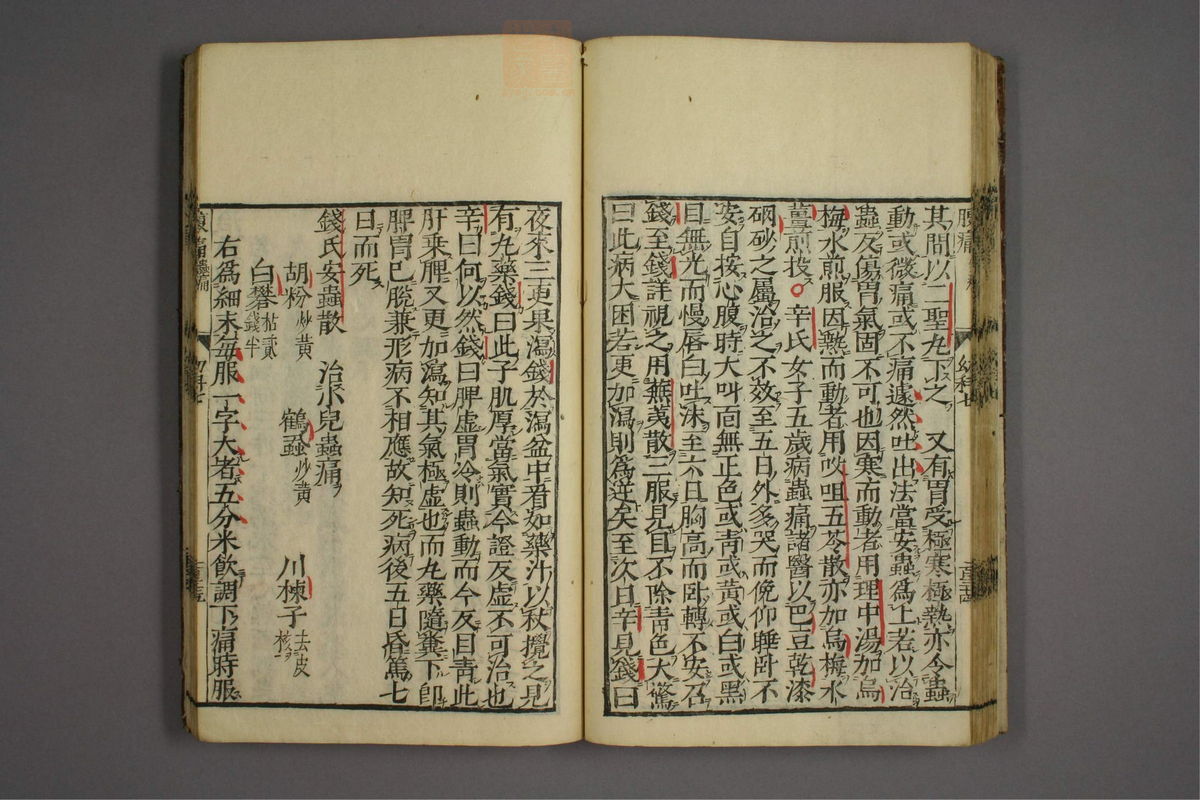 腹痛
幼科七
其間以二聖丸下之　又有胃受極寒極熱亦令蟲
動或微痛或不痛遽然吐出法當安蟲爲上若以治
蟲反傷胃氣固不可也因寒而動者用理中湯加烏
梅水煎服因熱而動者用㕮咀五苓散亦加烏梅水
薑煎投○辛氏女子五歲病蟲痛諸醫以巴豆乾漆
硇砂之屬治之不效至五日外多哭而俛仰睡卧不
安自按心腹時大叫面無正色或青或黃或白或黑
目無光而慢唇白吐沫至六日胸高而卧轉不安召
錢至錢詳視之用蕪荑散三服見目不除青色大驚
曰此病大困若更加瀉則爲逆矣至次日辛見錢曰
夜來三更果瀉錢於瀉盆中看如藥汁以杖攪之見
有丸藥錢曰此子肌厚當氣實今證反虛不可治也
辛曰何以然錢曰脾虛胃冷則蟲動而今反目青此
肝乘脾又更加瀉知其氣極虛也而丸藥隨糞下卽
脾胃已脫兼形病不相應故知死病後五日昏篤七
日而死
錢氏安蟲散　治小兒蟲痛
胡粉炒黃　鶴蝨炒黃　川楝子去皮核
白礬枯貳錢半
右爲細末每服一字大者五分米飲調下痛時服